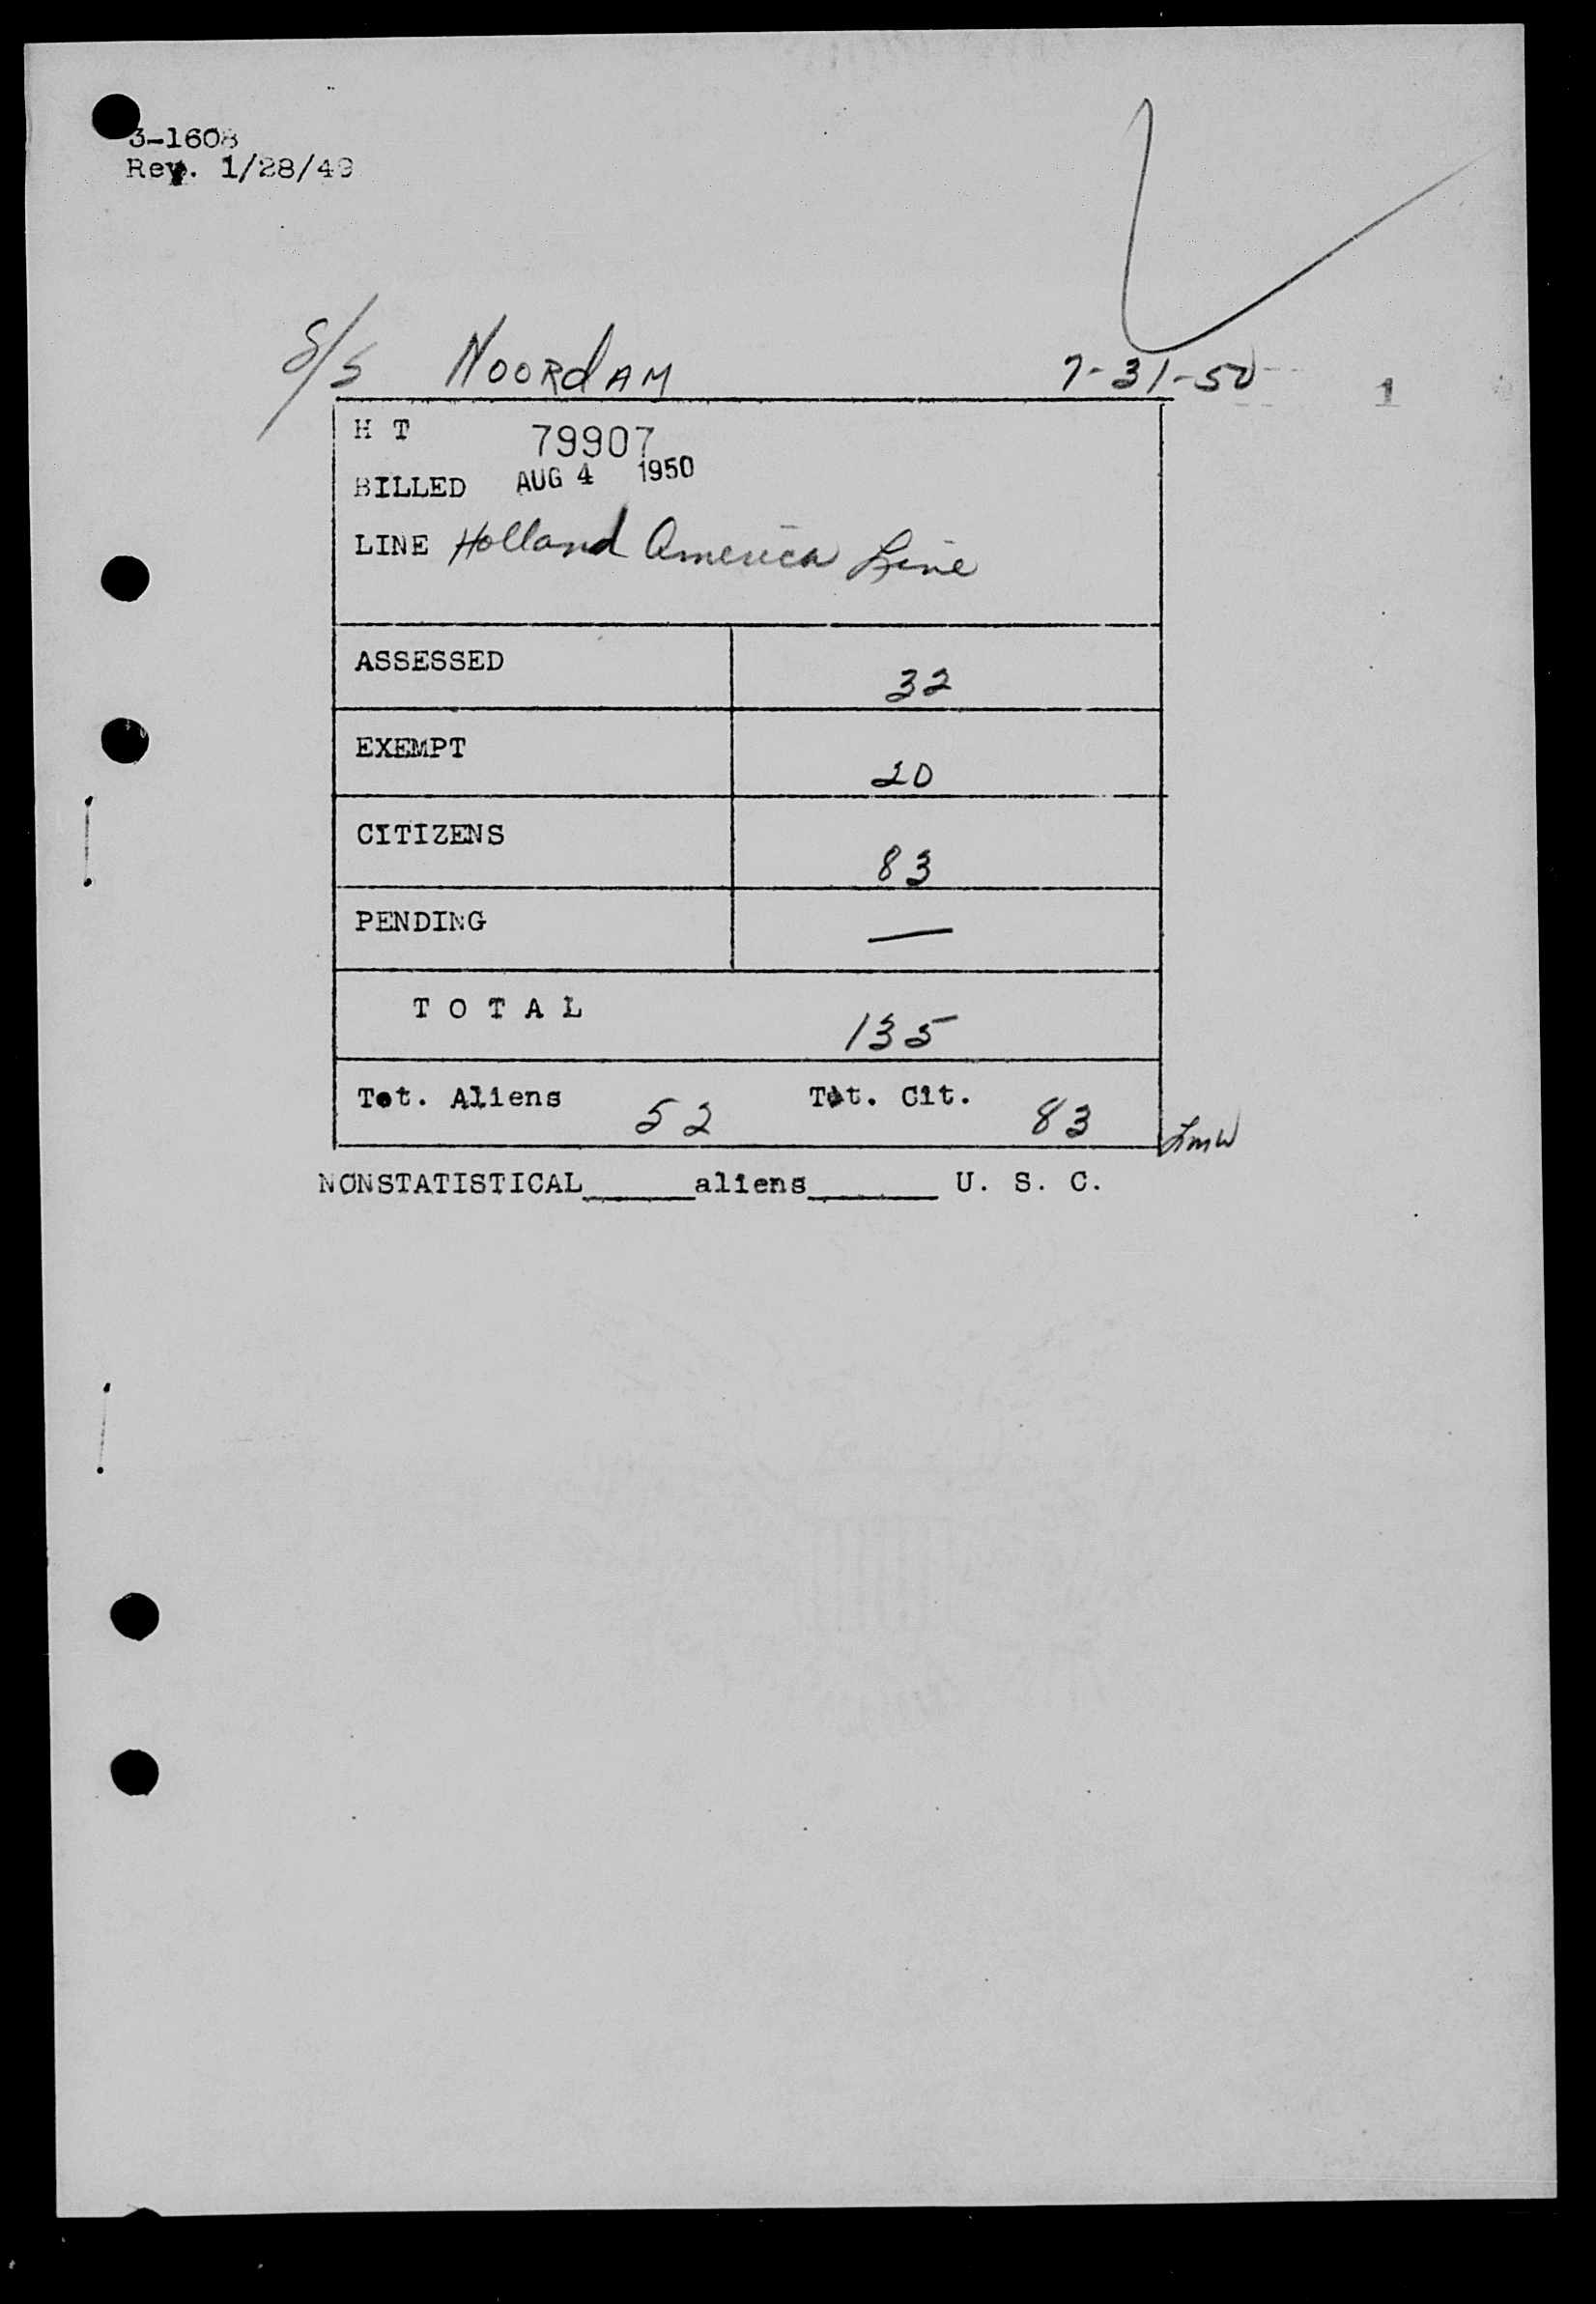 3-1608
Rev. 1/28/49
S/S NOORDAM 7-31-50
1
H T 79907
BILLED AUG 4 1950
LINE Holland America Line
ASSESSED 32
EXEMPT 20
CITIZENS 83
PENDING —
T O T A L 135
Tot. Aliens 52 Tot. Cit. 83
LMW
NONSTATISTICAL______aliens_______ U. S. C.